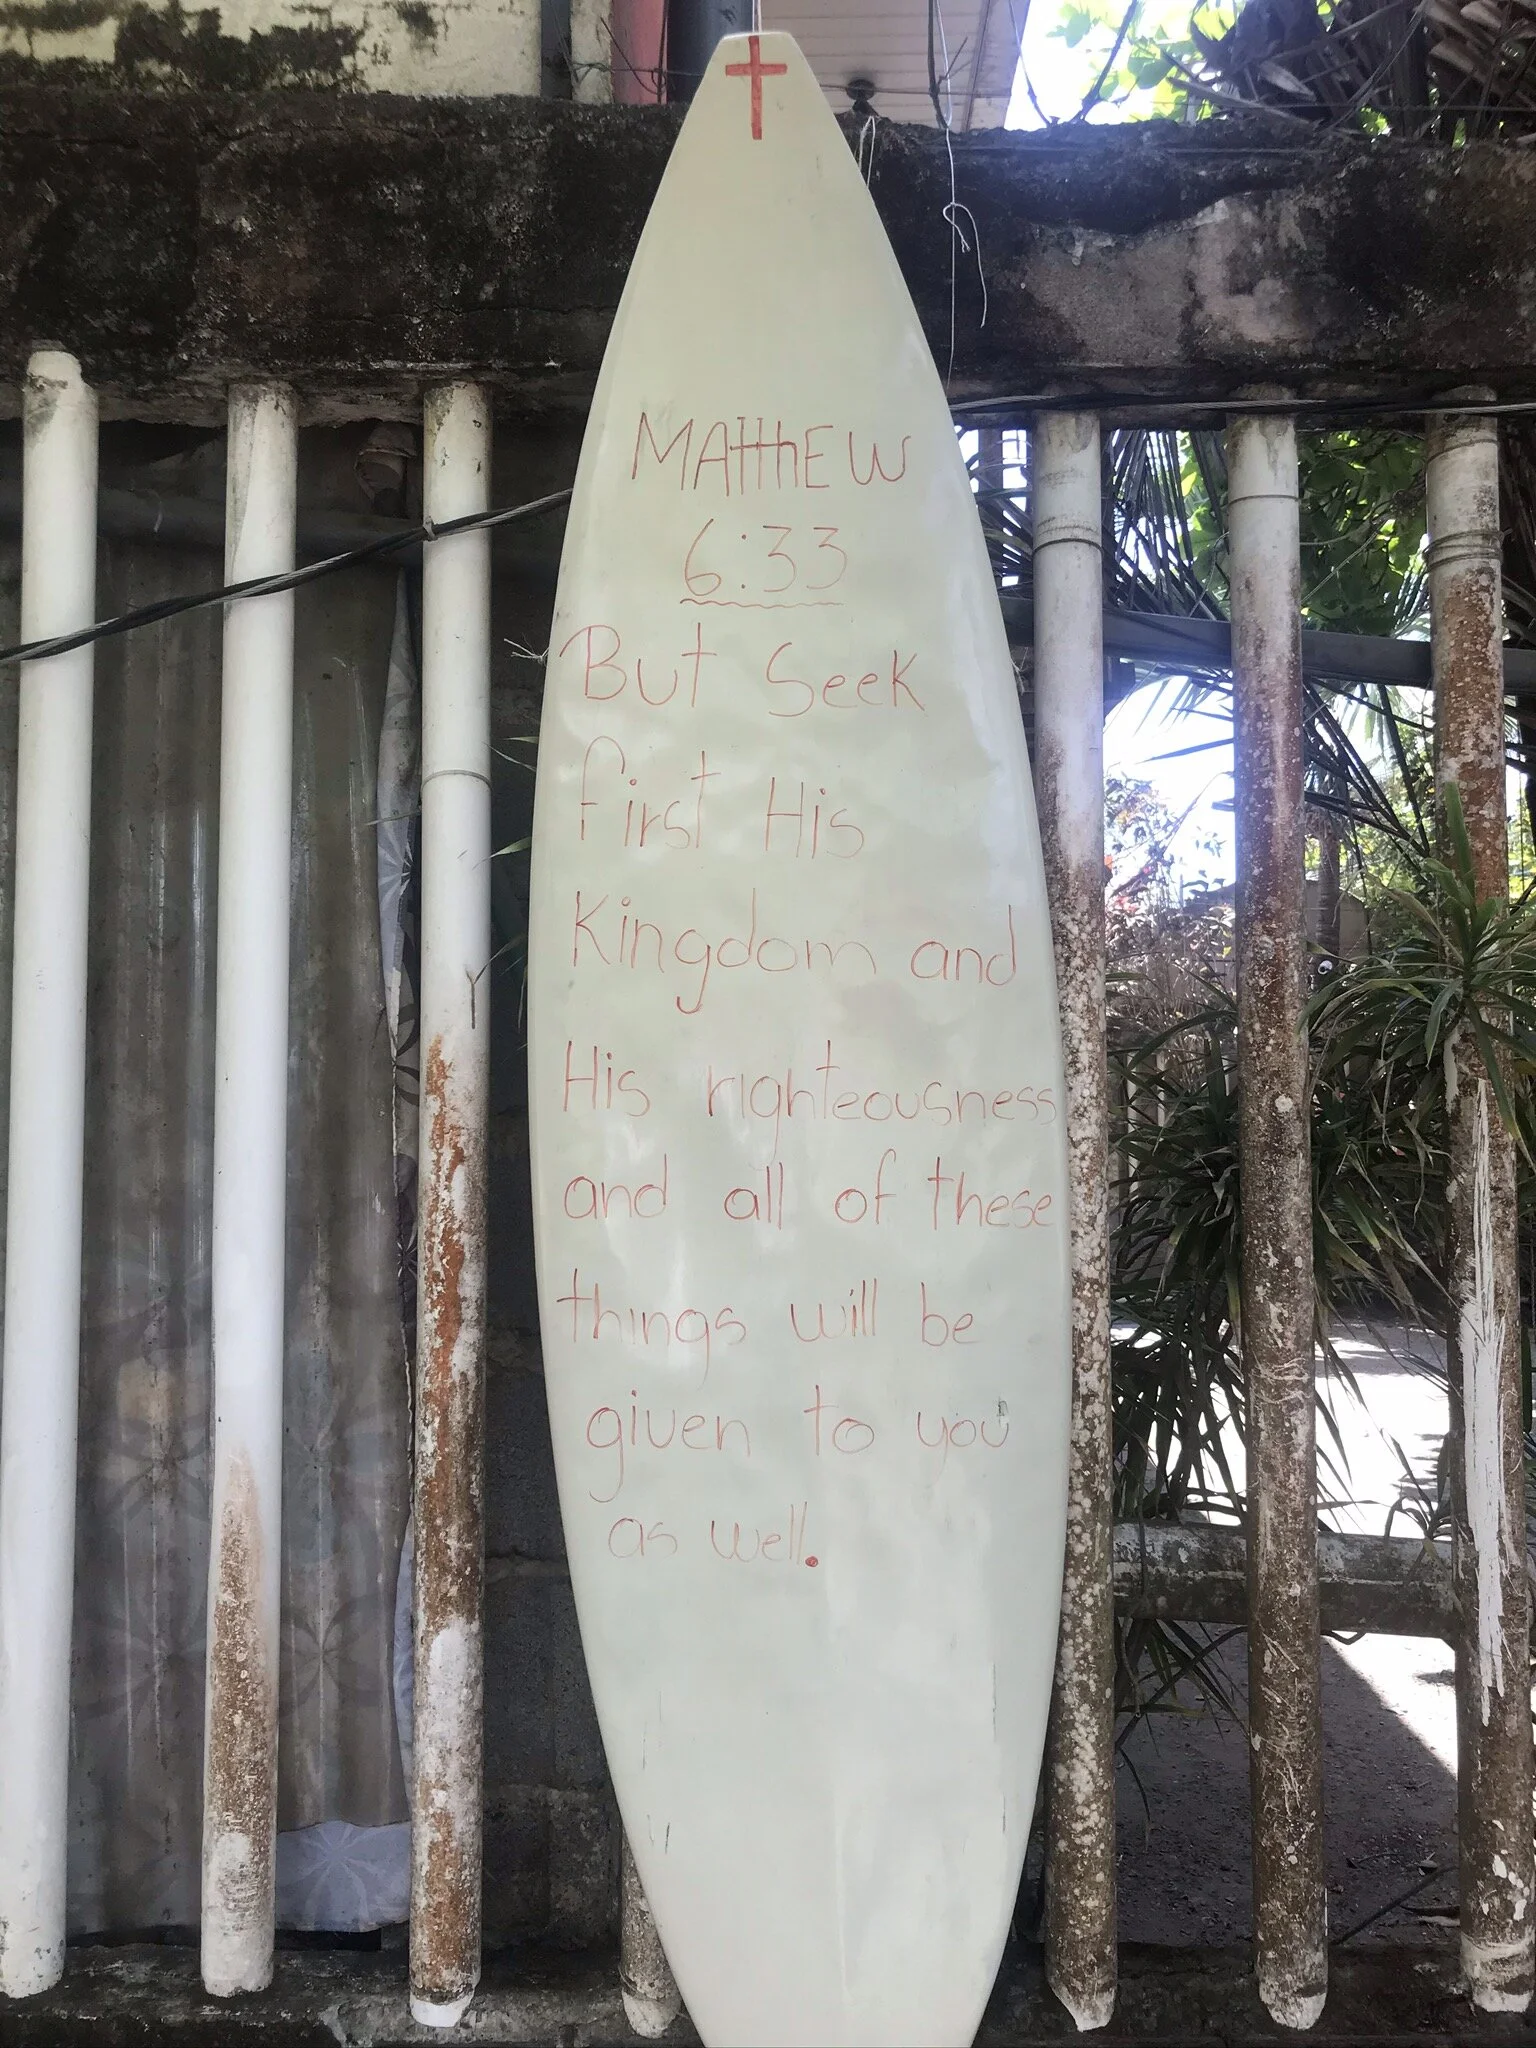 MAtthEW
6:33
But Seek
first His
Kingdom and
His righteousness
and all of these
things will be
given to you
as well.